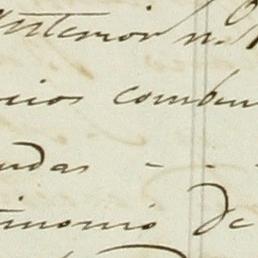 nterior n.
cios combu
udas - - -
imonio de